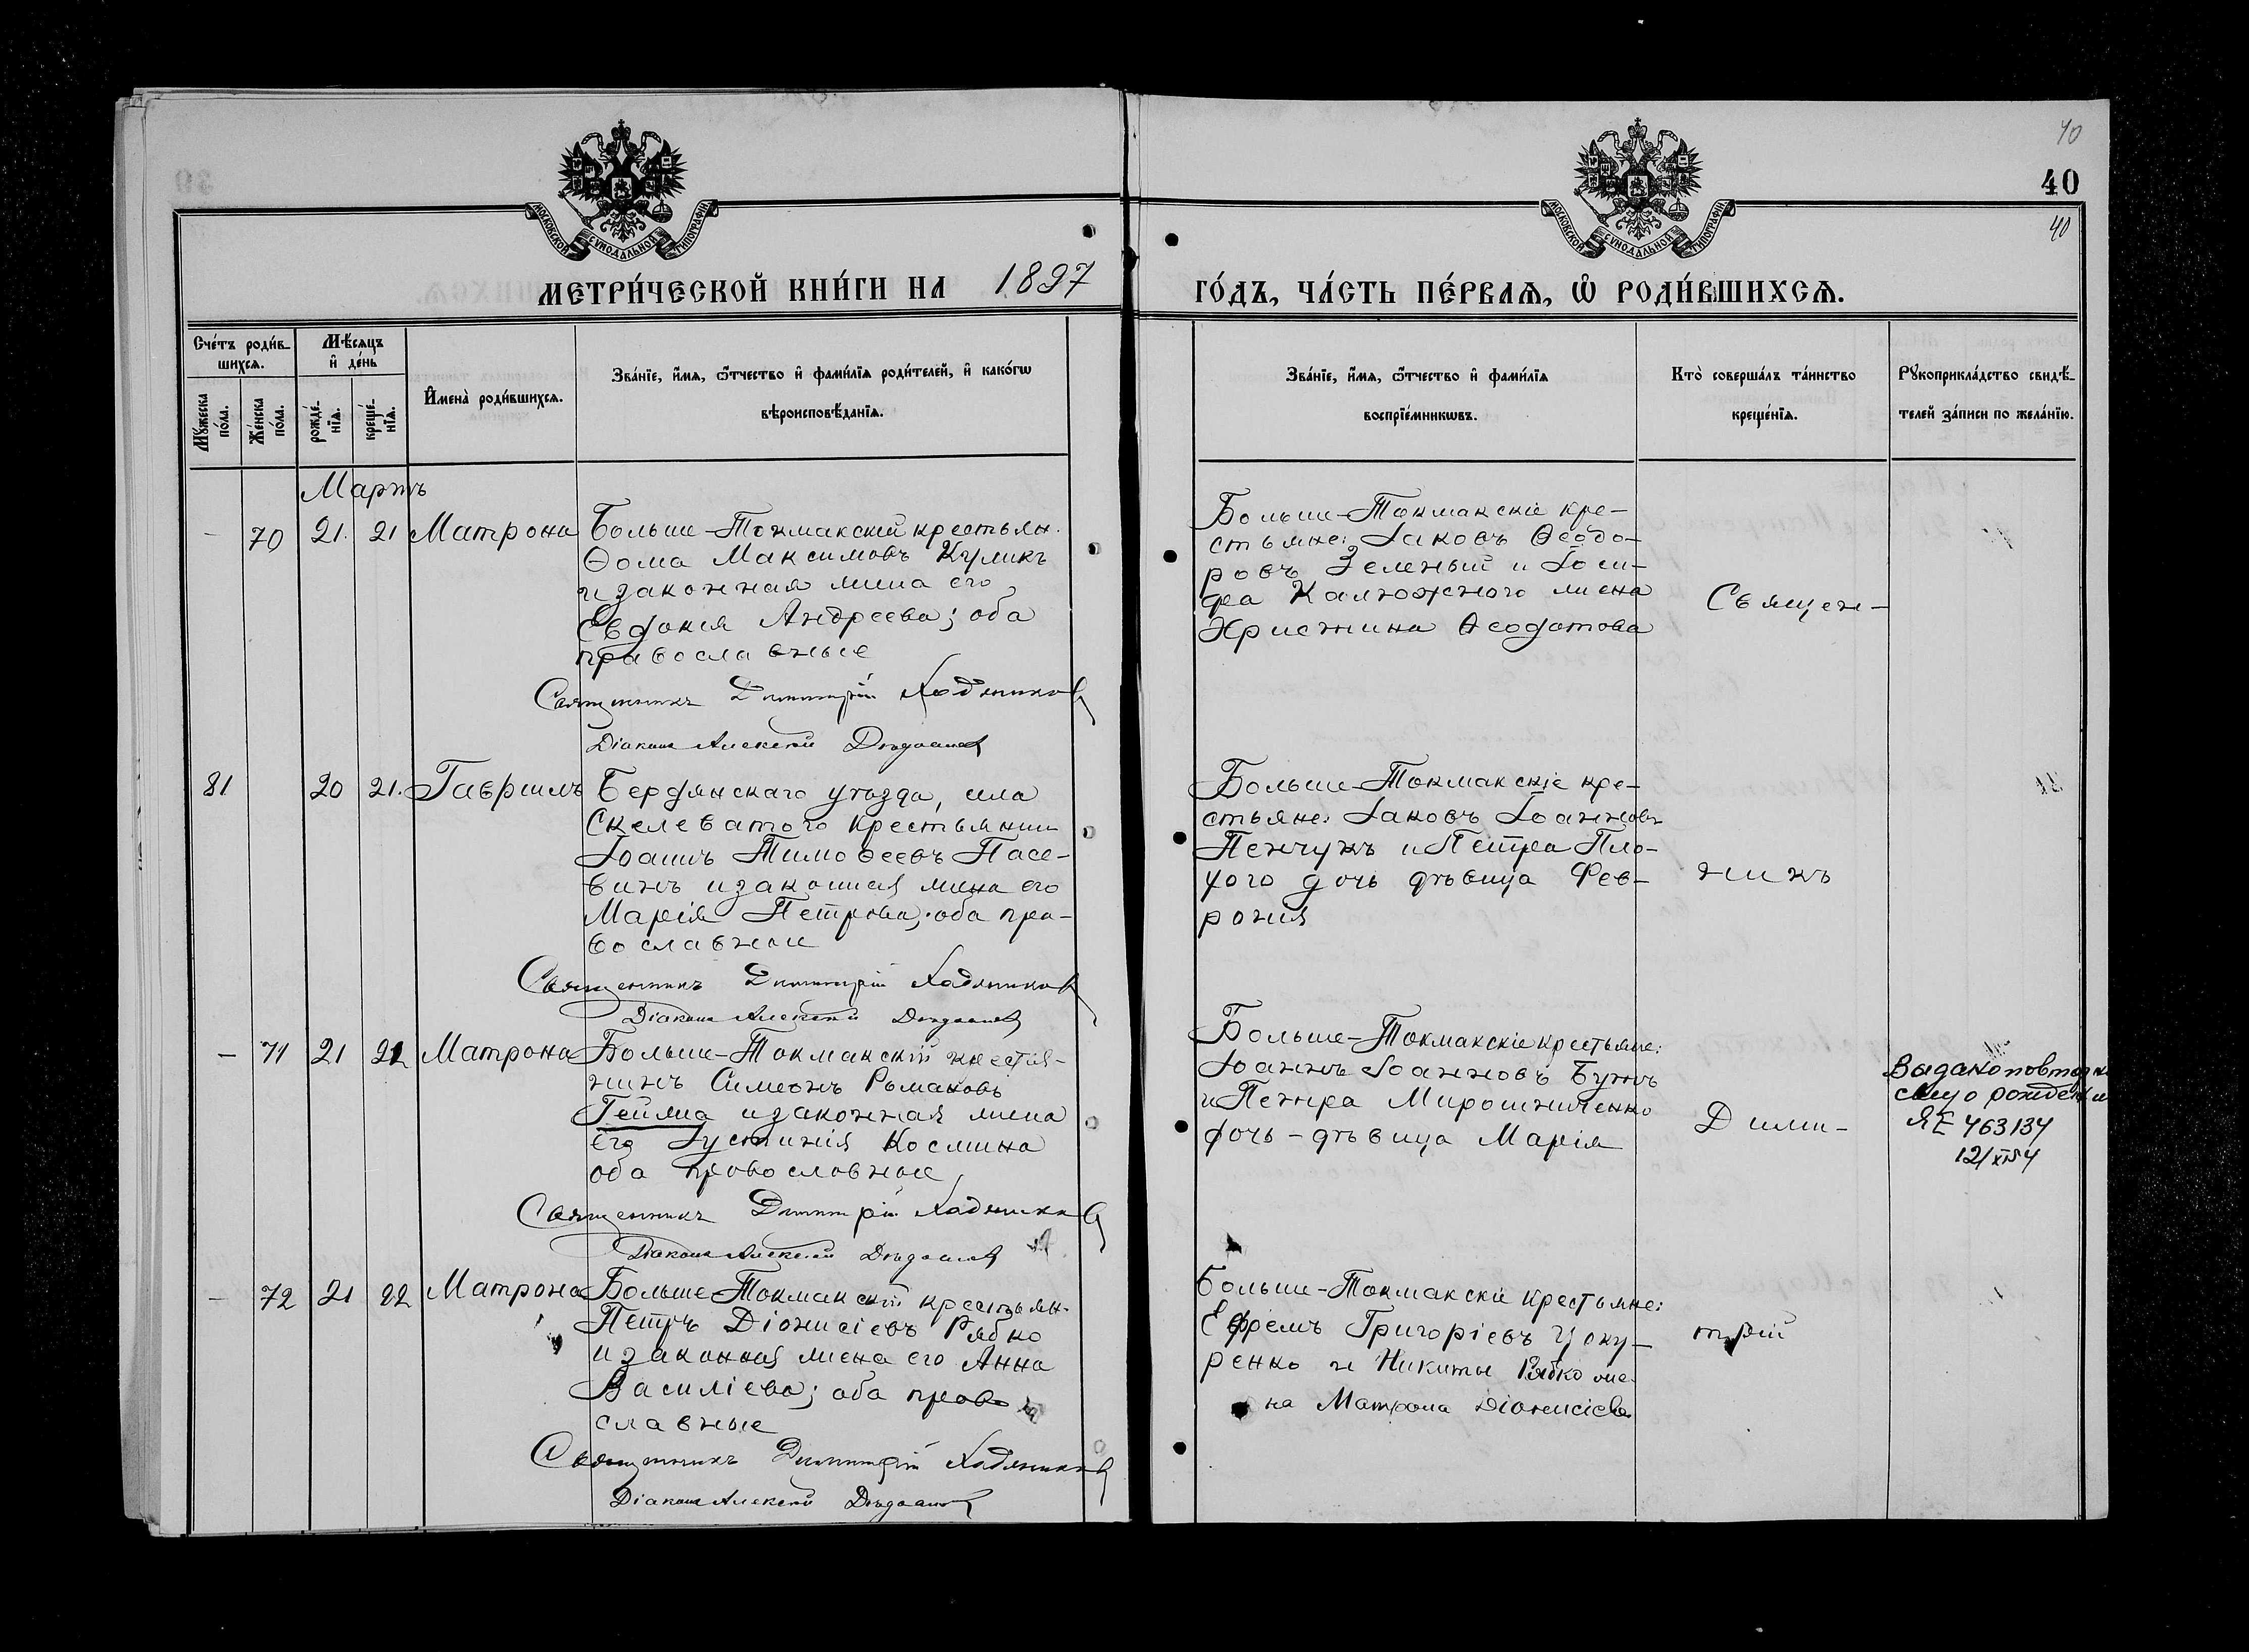 40
40
40
МОСКОВСКОЙ СѴНОДАЛЬНОЙ ТИПОГРАФІИ
МОСКОВСКОЙ СѴНОДАЛЬНОЙ ТИПОГРАФІИ
МЕТРИ́ЧЕСКОЙ КНИ́ГИ НА 1897
ГО́ДЪ, ЧА́СТЬ ПЕ́РВАѦ, Ѡ РОДИ́ВШИХСѦ.
Сче́тъ роди́в-
шихсѧ.
Мꙋ́жеска
по́ла.
Же́нска
по́ла.
Мѣ́сѧцъ
и҆ де́нь
рожде́-
нїѧ.
креще́-
нїѧ.
И҆мена̀ роди́вшихсѧ.
Зва́нїе, и҆́мѧ, ѻ҆́тчество и҆ фами́лїѧ роди́телей, и҆ како́гѡ
вѣроисповѣ́данїѧ.
Зва́нїе, и҆́мѧ, ѻ҆́тчество и҆ фами́лїѧ
воспрїе́мникѡвъ.
Кто̀ соверша́лъ та́инство
креще́нїѧ.
Рꙋкоприкла́дство свидѣ́-
телей за́писи по жела́нїю.
Мартъ
- 70 21. 21 Матрона
Больше-Токмакскій крестьян.
Ѳома Максимовъ Куликъ
и законная жена его
Евдокія Андреева; оба
православные
Священникъ Димитрій
Діаконъ Алексѣй
Больше-Токмакскіе кре-
стьяне: Іаковъ Ѳеодо-
ровъ Зеленый и Іоси-
фа Калюжного жена
Христина Ѳеодотова
Священ-
81 20 21. Гавріилъ
Бердянскаго уѣзда, села
Скелеватого крестьянин
Іоаннъ Тимоѳеевъ Пасе-
винъ и законная жена его
Марія Петрова; оба пра-
вославные
Священникъ Димитрій
Діаконъ Алексѣй
Больше-Токмакскіе кре-
стьяне: Іаковъ Іоанновъ
Пенчукъ и Петра Пло-
хого дочь дѣвица Фев-
ронія
никъ
- 71 21 22 Матрона
Больше-Токмакскій крестья-
нинъ Симеонъ Романовъ
Гейма и законная жена
его Іустинія Космина
оба православные
Священникъ Димитрій
Діаконъ Алексѣй
Больше-Токмакскіе крестьяне:
Іоаннъ Іоанновъ
и Петра Мирошниченко
дочь-дѣвица Марія
Дими-
Выдано повторн
св. о рождении
ЯЕ 463134
12/XI 54
- 72 21 22 Матрона
Больше-Токмакскій крестьян.
Петръ Діонисіевъ Рябко
и законная жена его Анна
Василіева; оба право
славные
Священникъ Димитрій
Діаконъ Алексѣй
Больше-Токмакскіе крестьяне:
Ефремъ Григоріевъ Цоку-
ренко и Никиты Рябко же-
на Матрона Діонисіева
трій